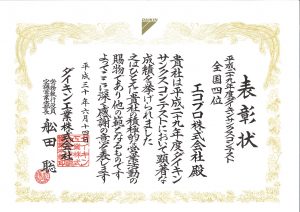 DAIKIN
表彰状
平成二十九年度ダイキンサンクスコンテスト
全国四位
エコプロ株式会社 殿
貴社は平成二十九年度ダイキン
サンクスコンテストにおいて顕著な
成績を挙げられました
これはひとえに貴社の積極的な営業活動の
賜物であり他の範となるものです
よってここに深く感謝の意を表します
平成三十年六月十四日
ダイキン工業株式会社
常務執行役員
舩田 聡